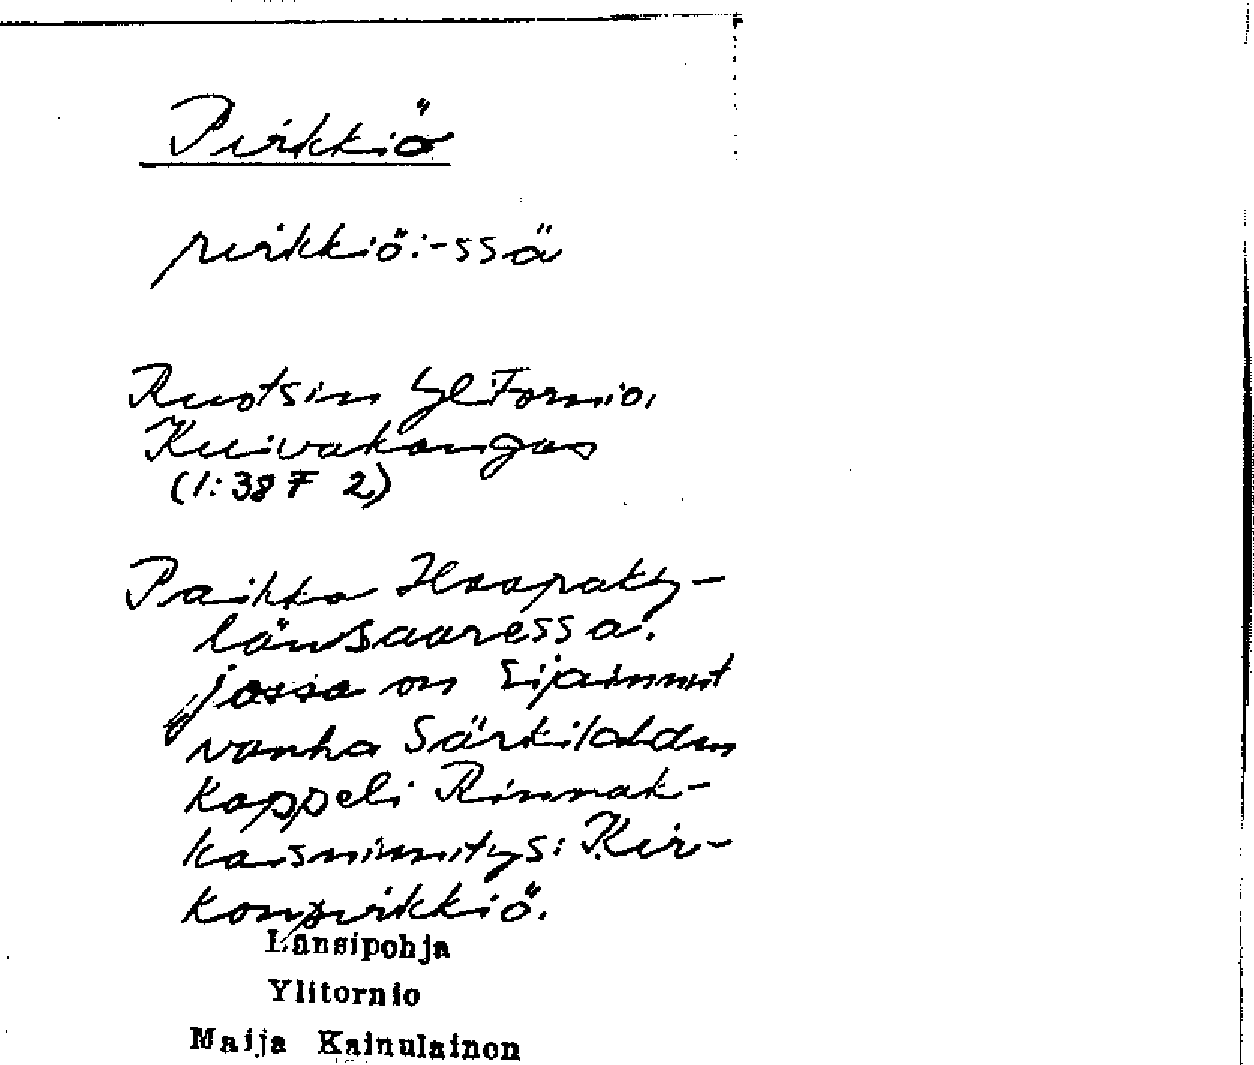 Pirkkiö
pirkkiö:-ssä
Ruotsin Yl.Tornio,
Kuivakangas
(1:38 F 2)
Paikka Haapaky-
länsaaressa.
jossa on sijainnut
vanha Särkilahden
kappeli Rinnak-
kaisnimitys: Kir-
konpirkkiö.
Länsipohja
Ylitornio
Maija Kainulainen